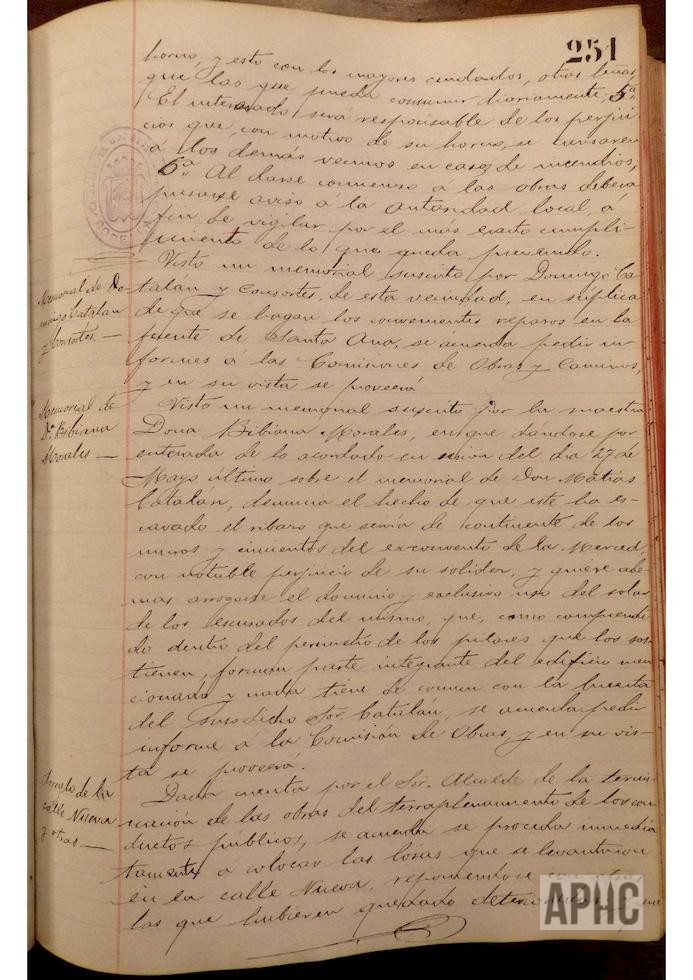 251
horno, y esto con los mayores cuidados, otras leñas
que las que pueda consumir diariamente; 5ª
El interesado será responsable de los perjui-
cios que, con motivo de su horno, se causaren
a los demás vecinos en caso de incendios;
6ª Al darse comienzo á las obras deberá
pasarse aviso á la autoridad local, á
fin de vigilar por el mas exacto cumpli-
miento de lo que queda prevenido.
Memorial de Do-
mingo Catalan
y Consortes. —
Visto un memorial suscrito por Domingo Ca-
talan y Consortes, de esta vecindad, en súplica
de que se hagan los convenientes reparos en la
fuente de Santa Ana, se acuerda pedir in-
formes á las Comisiones de Obras y Caminos,
y en su vista se proveerá
Memorial de
Dª Bibiana
Morales —
Visto un memorial suscrito por la maestra
Doña Bibiana Morales, en que dándose por
enterada de lo acordado en sesión del día 27 de
Mayo último sobre el memorial de Don Matías
Catalan, denuncia el hecho de que este ha es-
cavado el ribazo que servía de continente de los
muros y cimientos del exconvento de la Merced,
con notable perjuicio de su solidez, y quiere ade-
mas arrogarse el dominio y exclusivo uso del solar
de los escusados del mismo, que, como comprendi-
do dentro del perimetro de los pilares que los sos-
tienen, forman parte integrante del edificio men-
cionado y nada tiene de comun con la huerta
del susodicho Sor. Catalán, se acuerda pedir
informe á la Comisión de Obras y en su vis-
ta se proveerá.
Arreglo de la
calle Nueva
y otras —
Dada cuenta por el Sor. Alcalde de la termi-
nación de las obras del terraplenamiento de los con-
ductos públicos, se acuerda se proceda inmedia-
tamente a colocar las losas que se levantaron
en la calle Nueva, reponiendose con otras
las que hubieren quedado deterioradas y
APHC